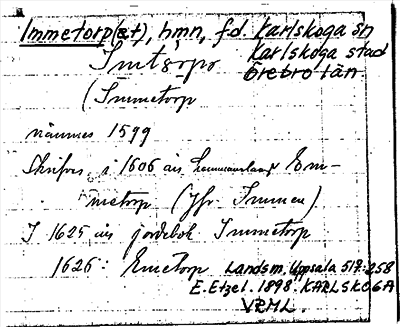 Immetorp(et), hmn, f.d. Karlskoga sn
Karlskoga stad
Örebro län
Imtŏrpə
(Immetorp
nämnes 1599
Skrifves i 1606 års Em-
metorp (Jfr Immen)
I 1625 års jordebok Immetorp
1626: Emetorp Landsm. Uppsala 517:258
E. Etzel. 1898. KARLSKOGA
VRML.